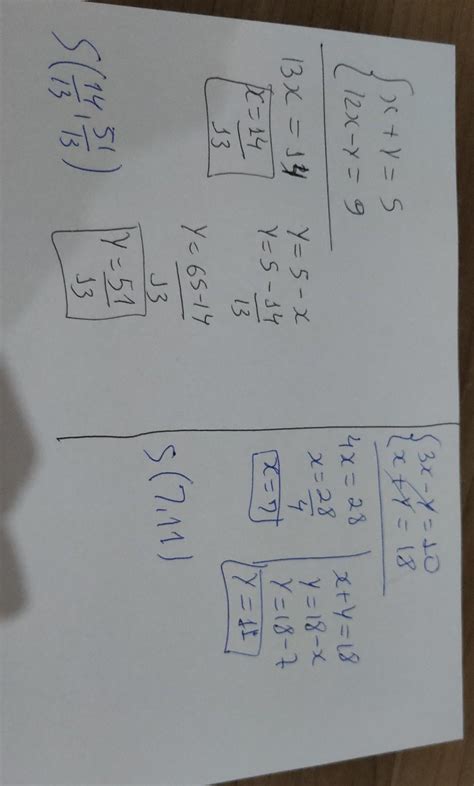 { x + y = 5
{ 12x - y = 9
13x = 14
x = 14/13
y = 5 - x
y = 5 - 14/13
y = 65 - 14/13
y = 51/13
S(14/13, 51/13)
{ 3x - y = 10
{ x + y = 18
4x = 28
x = 28/4
x = 7
x + y = 18
y = 18 - x
y = 18 - 7
y = 11
S(7, 11)